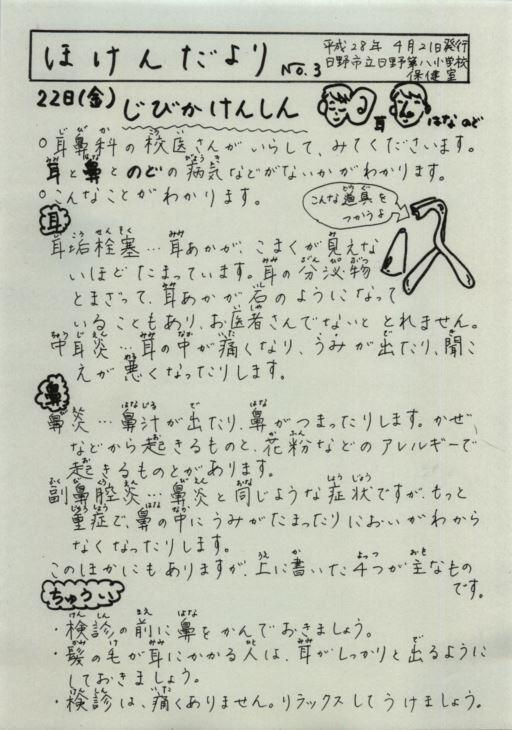 ほけんだより No.3
平成28年 4月21日発行
日野市立日野第八小学校
保健室
22日(金) じびかけんしん
耳 はな のど
○耳鼻科の校医さんがいらして、みてくださいます。
耳と鼻とのどの病気などがないかがわかります。
○こんなことがわかります。
こんな道具を
つかうよ
耳
耳垢栓塞…耳あかが、こまくが見えな
いほどたまっています。耳の分泌物
とまざって、耳あかが石のようになって
いることもあり、お医者さんでないと とれません。
中耳炎…耳の中が痛くなり、うみが出たり、聞こ
えが悪くなったりします。
鼻
鼻炎…鼻汁が出たり、鼻がつまったりします。かぜ
などから起きるものと、花粉などのアレルギーで
起きるものとがあります。
副鼻腔炎…鼻炎と同じような症状ですが、もっと
重症で、鼻の中にうみがたまったりにおいがわから
なくなったりします。
このほかにもありますが、上に書いた4つが主なもの
です。
ちゅうい
・検診の前に鼻をかんでおきましょう。
・髪の毛が耳にかかる人は、耳がしっかりと出るように
しておきましょう。
・検診は、痛くありません。リラックスしてうけましょう。